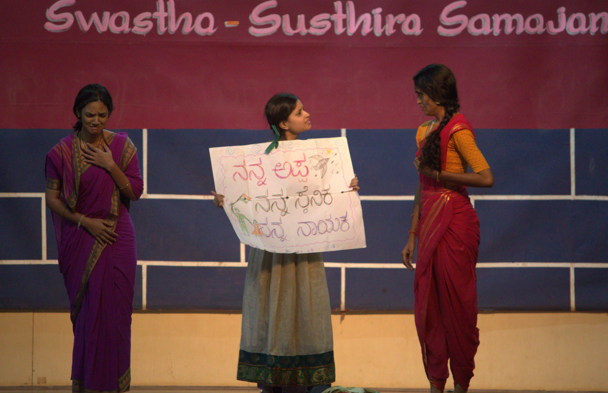 Swastha - Susthira Samajan
ನನ್ನ ಅಪ್ಪ
ನನ್ನ ಸೈನಿಕ
ನನ್ನ ನಾಯಕ